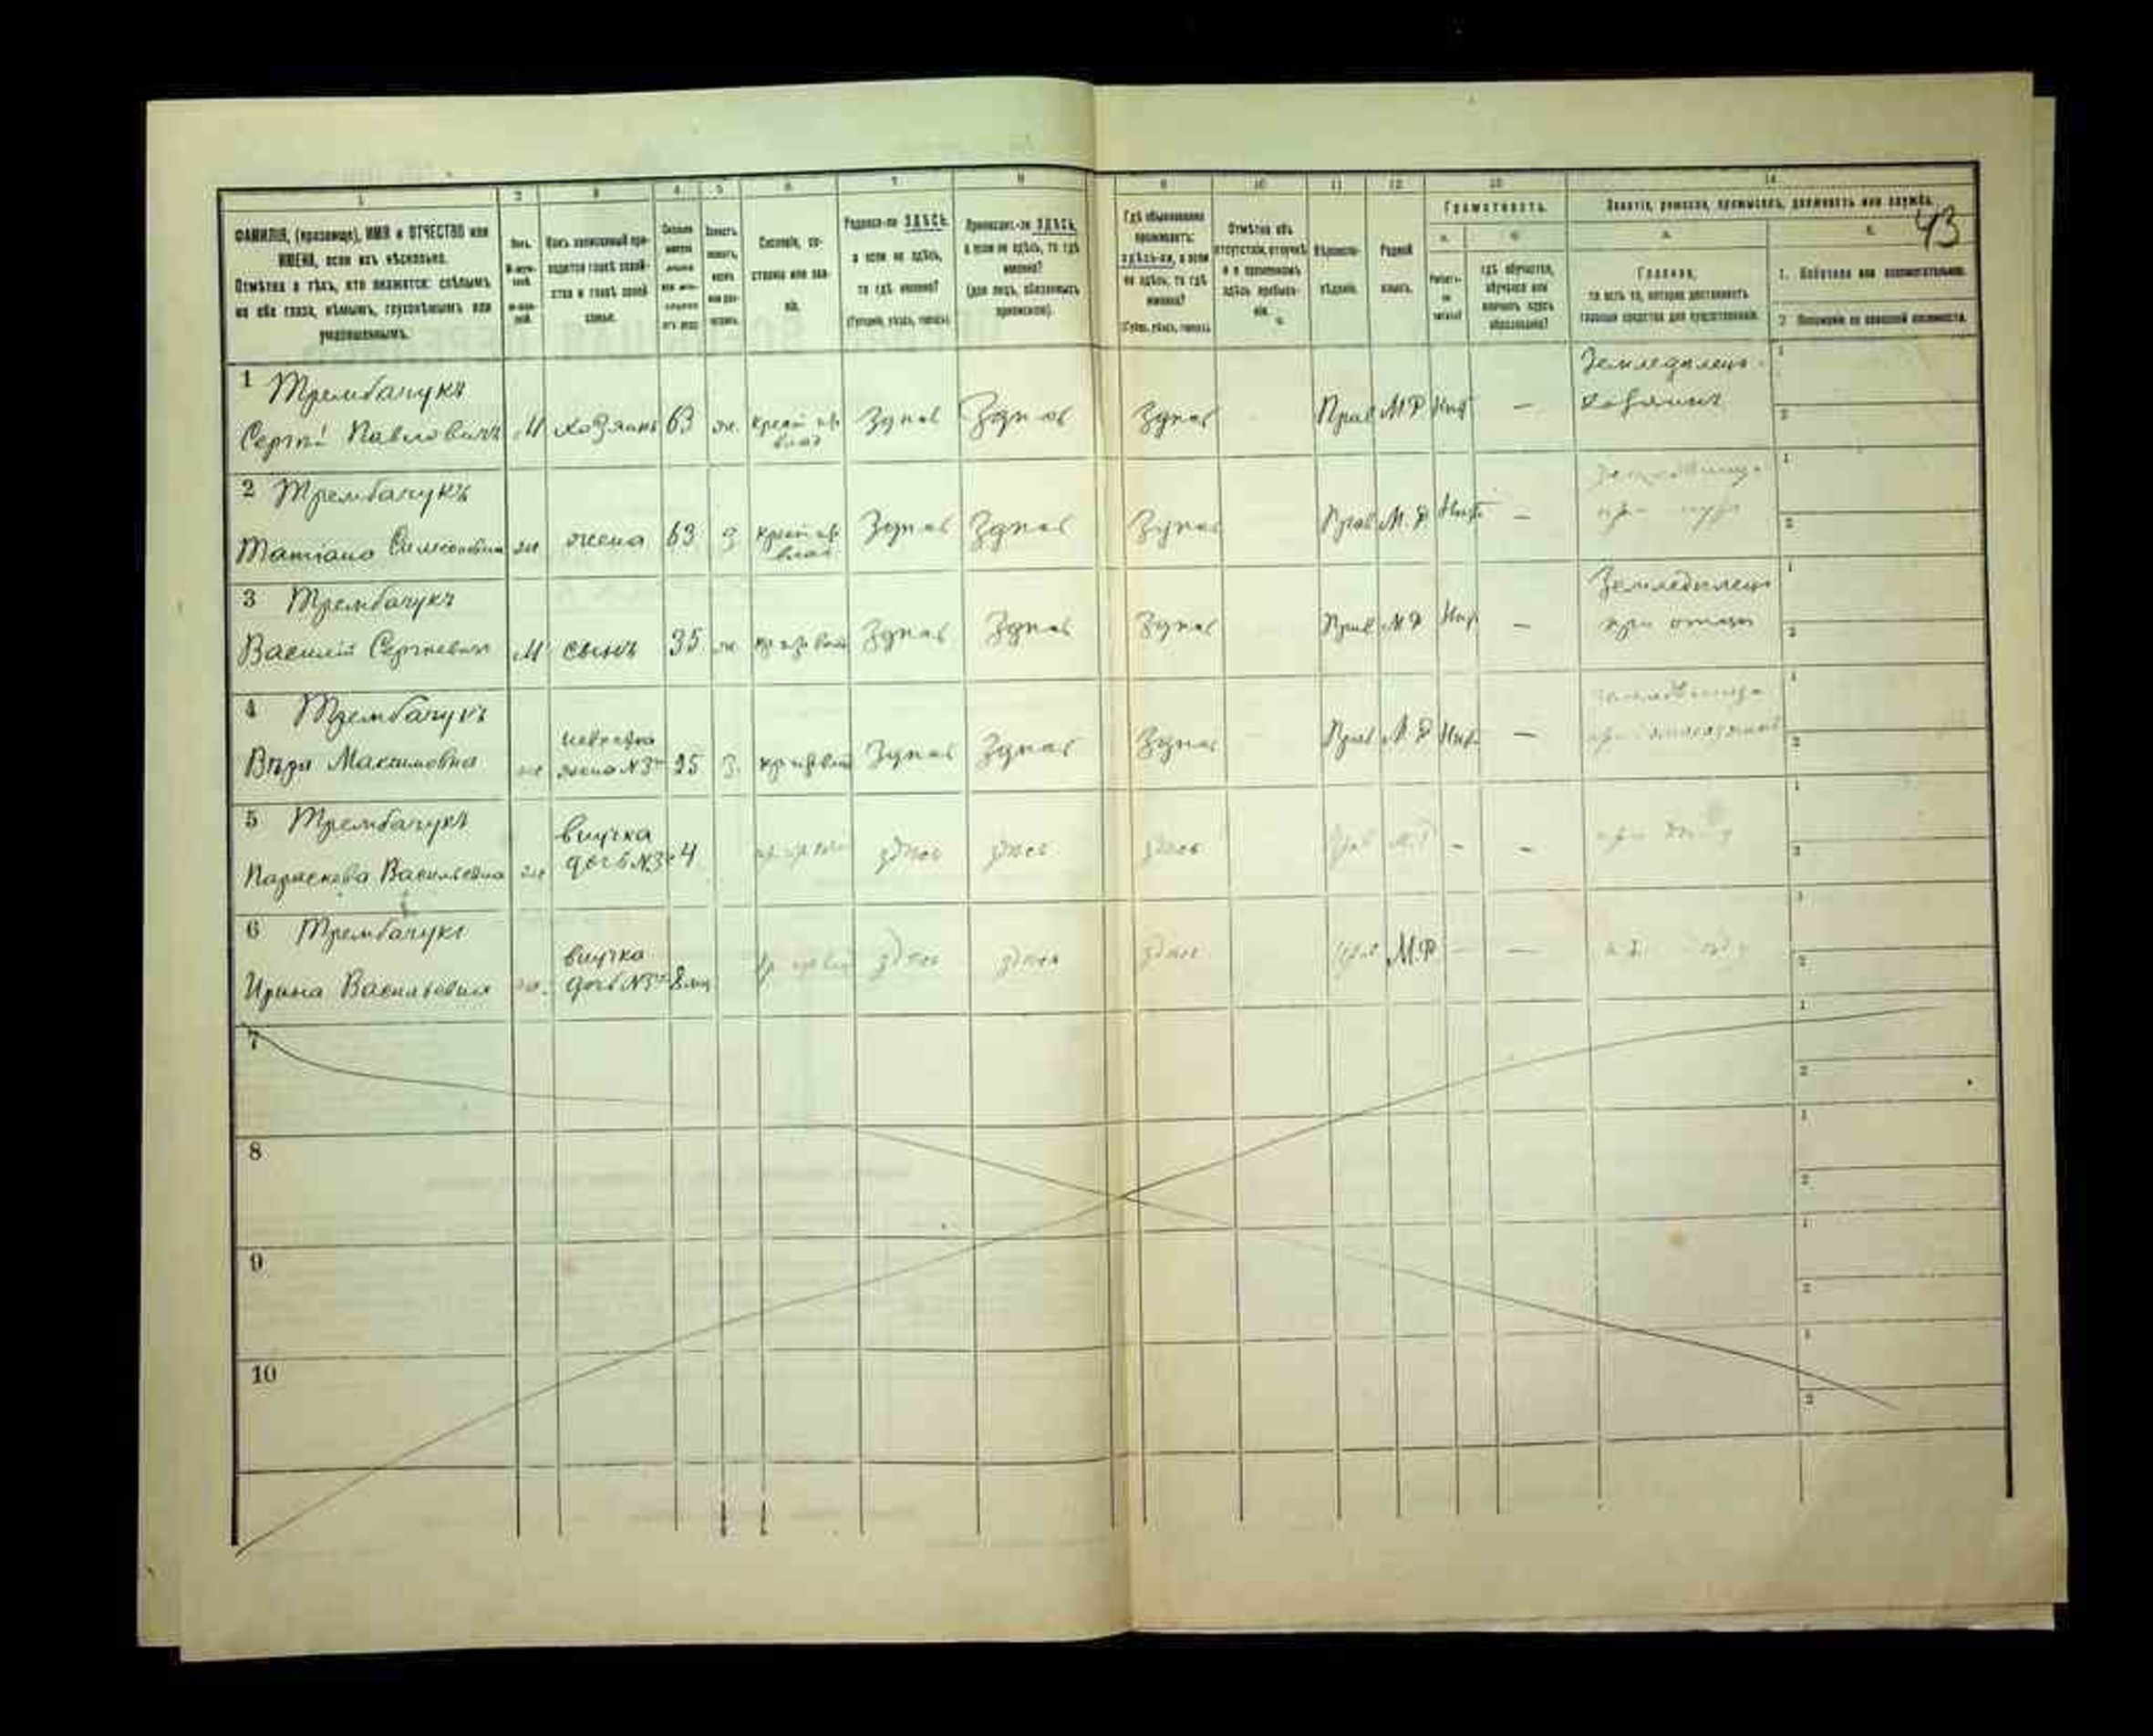 1
2
3
4
5
6
7
8
9
10
11
12
13
14
ФАМИЛІЯ, (прозвище), ИМЯ и ОТЧЕСТВО или
ИМЕНА, если ихъ нѣсколько.
Отмѣтка о тѣхъ, кто окажется: слѣпымъ
на оба глаза, нѣмымъ, глухонѣмымъ или
умалишеннымъ.
Полъ.
Какъ записанный при-
ходится главѣ хозяй-
ства и главѣ своей
семьи.
Сословіе, со-
стояніе или зва-
ніе.
Родился-ли ЗДѢСЬ,
а если не здѣсь,
то гдѣ именно?
(Губернія, уѣздъ, городъ).
Приписанъ-ли ЗДѢСЬ,
а если не здѣсь, то гдѣ
именно?
(для лицъ, обязанныхъ
припискою).
Гдѣ обыкновенно
проживаетъ:
здѣсь-ли, а если
не здѣсь, то гдѣ
именно?
(Губер., уѣздъ, городъ).
Отмѣтка объ
отсутствіи, отлучкѣ
и о временномъ
здѣсь пребыва-
ніи.
Вѣроиспо-
вѣданіе.
Родной
языкъ.
Грамотность.
а.
б.
гдѣ обучается,
обучался или
кончилъ курсъ
образованія?
Занятіе, ремесло, промыселъ, должность или служба.
43
Главное,
то есть то, которое доставляетъ
главныя средства для существованія.
1. Побочное или вспомогательное.
2. Положеніе по воинской повинности.
1 Трембачукъ
Сергѣй Павловичъ
М
хозяинъ
63
ж.
здѣсь
здѣсь
здѣсь
Прав
МР
Нѣт
—
Земледѣлецъ-
хозяинъ
2 Трембачукъ
Татіана Симеоновна
ж
жена
63
З
здѣсь
здѣсь
здѣсь
Прав
М.Р
Нѣт
—
3 Трембачукъ
Василій Сергѣевичъ
М
сынъ
35
ж
здѣсь
здѣсь
здѣсь
Прав
МР
Нѣт
—
Земледѣлецъ
при отцѣ
4 Трембачукъ
Вѣра Максимовна
ж
невѣстка
жена №3го
25
З.
здѣсь
здѣсь
здѣсь
Прав
М.Р
Нѣт
—
5 Трембачукъ
Параскева Васильевна
ж
внучка
дочь №3го
4
здѣсь
здѣсь
здѣсь
Прав
М.Р
-
-
6 Трембачукъ
Ирина Васильевна
ж.
внучка
дочь №3го
8 мц
здѣсь
здѣсь
здѣсь
прав
М.Р
—
—
7
8
9
10